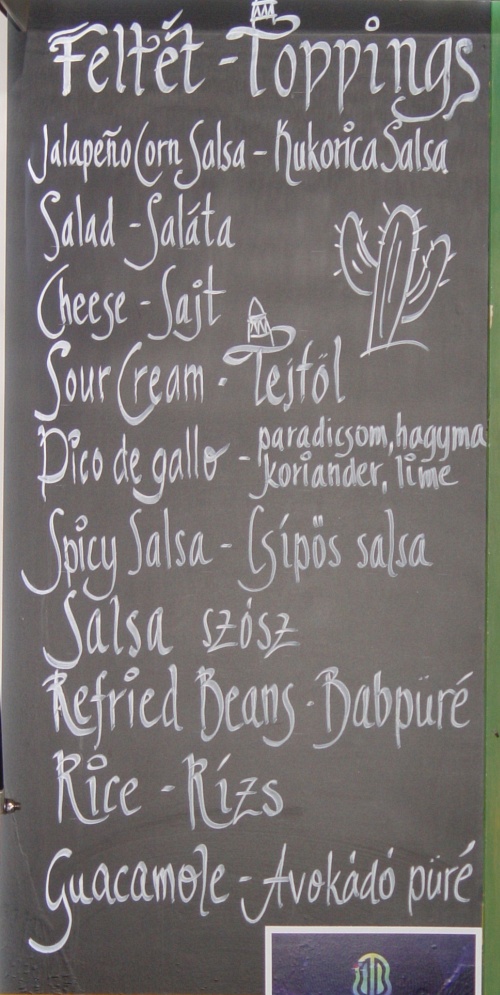 Feltét - Toppings
Jalapeño Corn Salsa - Kukorica Salsa
Salad - Saláta
Cheese - Sajt
Sour Cream - Tejföl
Pico de gallo - paradicsom, hagyma
koriander, lime
Spicy Salsa - Csípös salsa
Salsa szósz
Refried Beans - Babpüré
Rice - Rízs
Guacamole - Avokádó püré